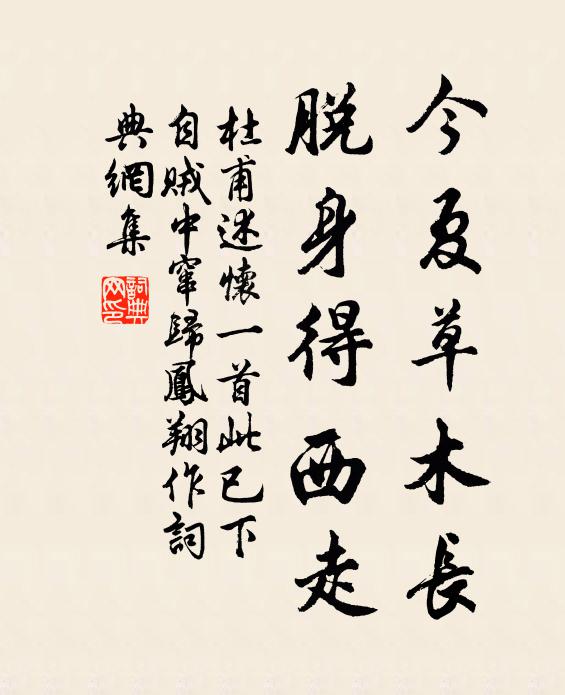 今夏草木長
脱身得西走
杜甫述懷一首此已下
自賊中竄歸鳳翔作詞
典網集
詞典
网印